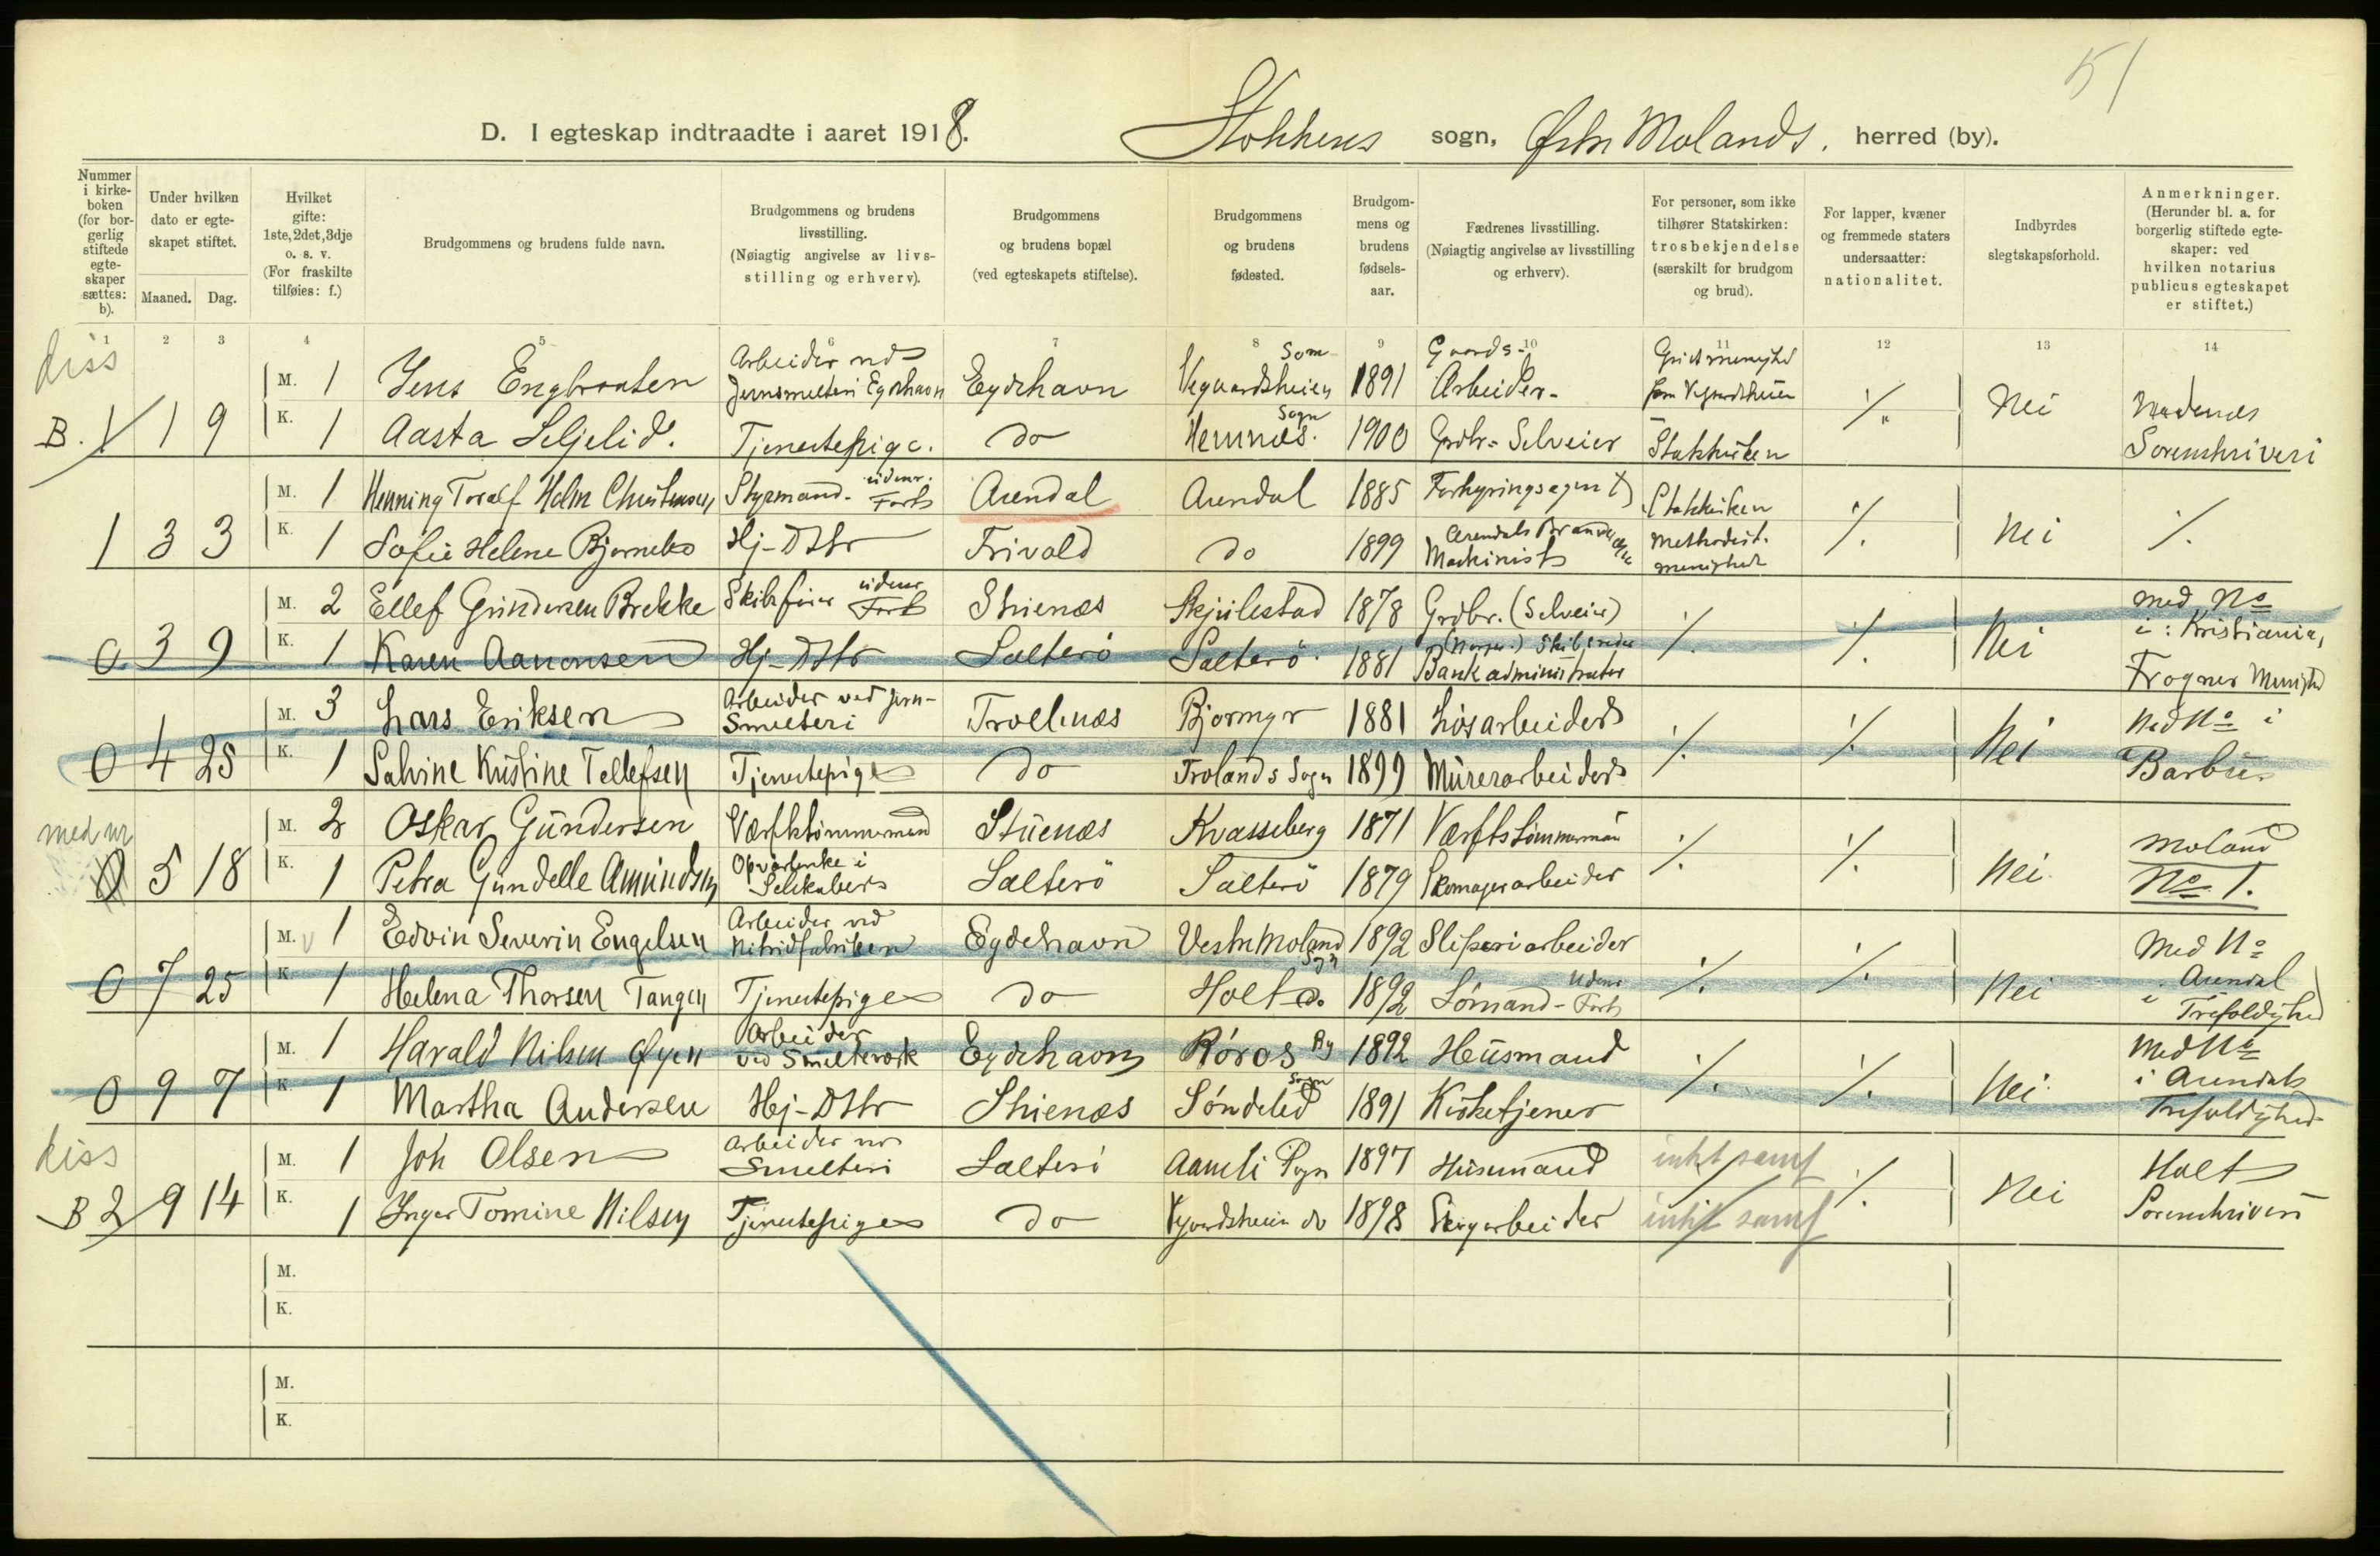 51
D. I egteskap indtraadte i aaret 1918. Stokkens sogn, Østre Molands. herred (by).
Nummer i kirke-boken (for bor-gerlig stiftede egte-skaper sættes: b).
Under hvilken dato er egte-skapet stiftet.
Maaned. Dag.
Hvilket gifte: 1ste, 2det, 3dje o. s. v. (For fraskilte tilføies: f.)
Brudgommens og brudens fulde navn.
Brudgommens og brudens livsstilling. (Nøiagtig angivelse av livs-stilling og erhverv).
Brudgommens og brudens bopæl (ved egteskapets stiftelse).
Brudgommens og brudens fødested.
Brudgom-mens og brudens fødsels-aar.
Fædrenes livsstilling. (Nøiagtig angivelse av livsstilling og erhverv).
For personer, som ikke tilhører Statskirken: trosbekjendelse (særskilt for brudgom og brud).
For lapper, kvæner og fremmede staters undersaatter: nationalitet.
Indbyrdes slegtskapsforhold.
Anmerkninger. (Herunder bl. a. for borgerlig stiftede egte-skaper: ved hvilken notarius publicus egteskapet er stiftet.)
1 2 3 4 5 6 7 8 9 10 11 12 13 14
diss
B. 1 1 9
M. 1 Jens Engbraaten Arbeider ved Jernsmelteri Eydehavn Eydehavn Vegaardsheien Sogn 1891 Gaards-Arbeider- fra Vegaardsheien ./. Nei Nedenes
K. 1 Aasta Seljelid. Tjenestepige. do Hemnes Sogn. 1900 Grdbr- Selveier Statskirken Sorenskriveri
1 3 3
M. 1 Henning Toralf Holm Christensen Styrmand- udenr. Fart Arendal Arendal 1885 Forhyringsagent Statskirken ./. Nei ./.
K. 1 Sofie Helene Bjørnebo Hj-Dttr Frivold do 1899 Arendals Maskinist Methodist. menighed
0 3 9
M. 2 Ellef Gundersen Brekke Skibsfører udenr Fart Stuenæs Skjulestad 1878 Grdbr. (Selveier) ./. ./. Nei Med No
K. 1 Karen Aanonsen Hj-Dttr Salterö Salterö. 1881 Skibsreder Bankadministrator i: Kristiania, Frogner Menighed
0 4 28
M. 3 Lars Eriksen Arbeider ved Jern-Smelteri Trollnæs Bjormyr 1881 Løsarbeider ./. ./. Nei Med No i
K. 1 Salvine Kristine Tellefsen Tjenestepige do Frolands Sogn 1899 Murerarbeider Barbu
med nr
0 5 18
M. 2 Oskar Gundersen Værftstømmermand Stuenæs Kvasseberg 1871 Værftstømmermand ./. ./. Nei. Moland
K. 1 Petra Gundelle Amundsen Opvartende i Selskaber Salterö Salterö 1879 Skomagerarbeider No 1.
0 7 25
M. 1 Edvin Severin Engelsen Arbeider ved Nitridfabriken Eydehavn Vestre Moland Sogn 1892 Sliperiarbeider ./. ./. Nei Med No
K. 1 Helena Thorsen Tangen Tjenestepige do Holt do 1892 Sømand- Udenr Fart i Arendal Trefoldighed
0 9 7
M. 1 Harald Nilsen Øyen Arbeider ved Smelteverk Eydehavn Röros By 1892 Husmand ./. ./. Nei. Med No
K. 1 Martha Andersen Hj-Dttr Stuenæs Söndeled Sogn 1891 Kirketjener i Arendals Trefoldighed
diss
B 2 9 14
M. 1 Joh Olsen Arbeider ved Smelteri Salterö Aamli Sogn 1897 Husmand intet samf ./. Nei Holt
K. 1 Inger Tomine Nilsen Tjenestepige do Vgaardsheien do 1898 intet samf Sorenskriveri
M.
K.
M.
K.